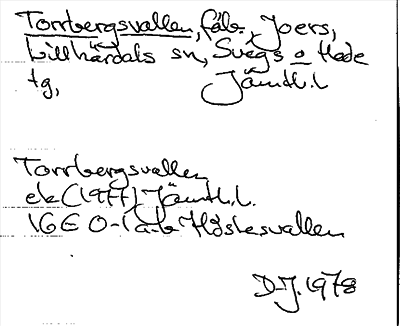 Torrbergsvallen, fäb., Joers,
Lillhärdals sn, Svegs o Hede
tg, Jämtl.l
Torrbergsvallen
ek (1977) Jämtl.l.
16E 0-1 a-b Höstesvallen
D-J. 1978